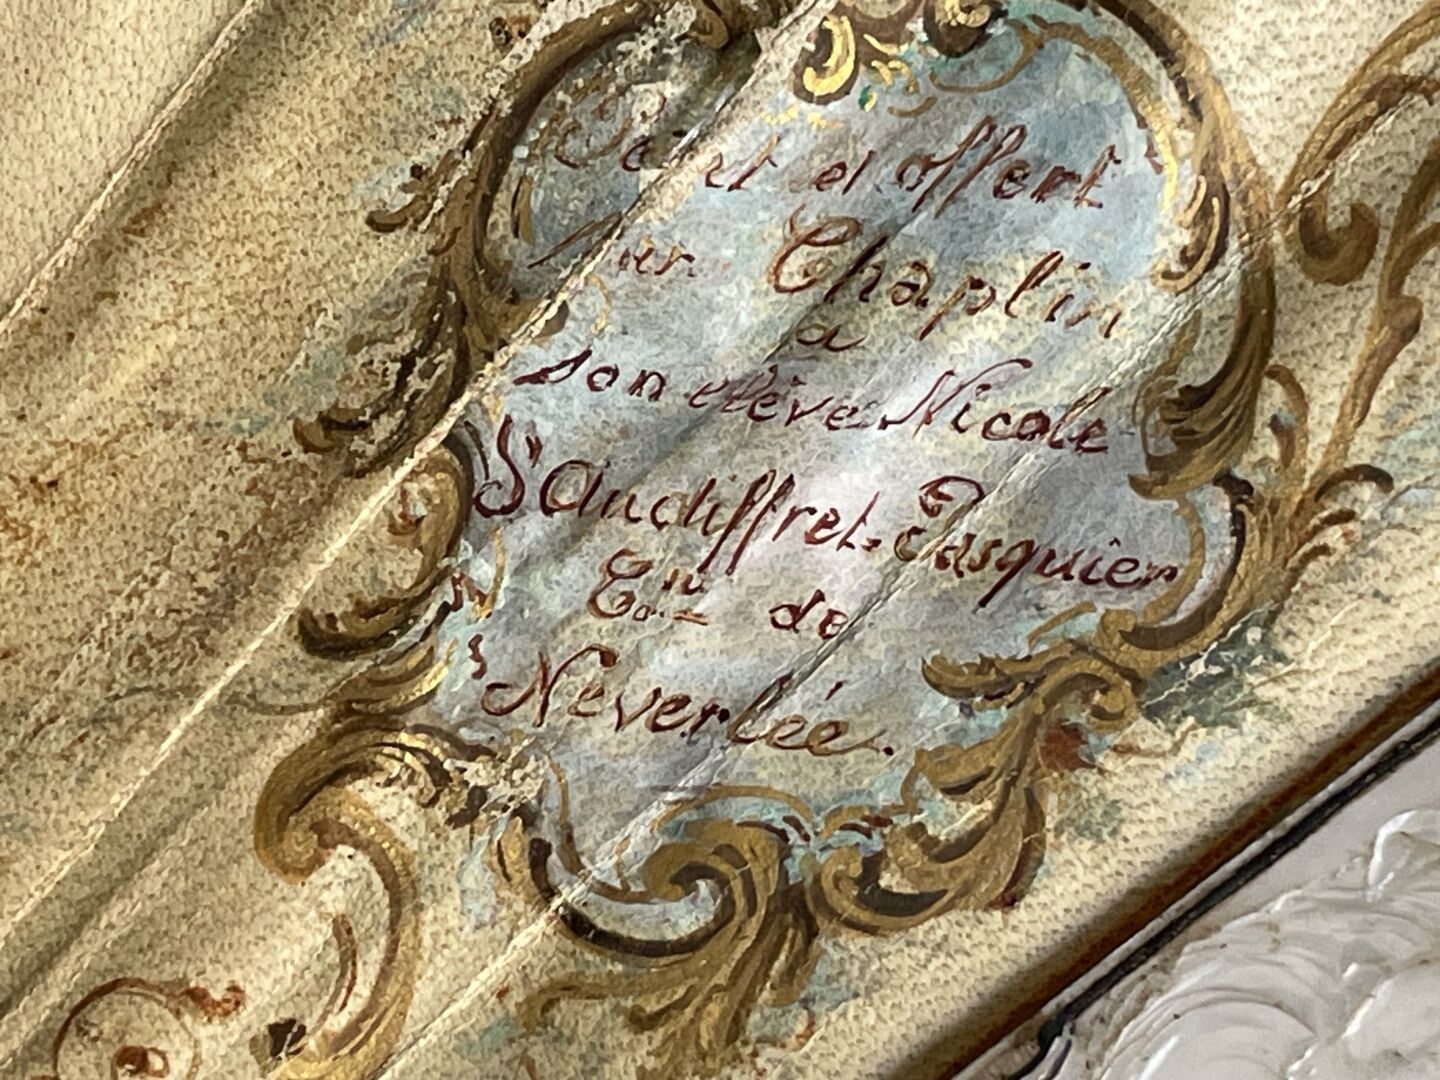 Peint et offert
par Chaplin
a
son élève Nicole
D'Audiffret-Pasquier
Ctsse de
Néverlée.